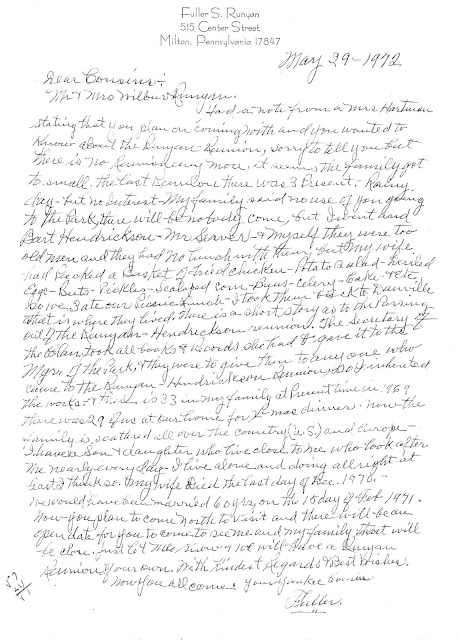 Fuller S. Runyan
515 Center Street
Milton, Pennsylvania 17847
May 29-1972
Dear Cousins:
Mr & Mrs Wilbur Runyan.
Had a note from a Mrs Hartman
stating that you plan on coming North and you wanted to
Know about the Runyan Reunion, sorry to tell you but
there is No Reunion any more, it seems the family got
to small. the last Reunion there was 3 Present. - Rainy
day - but no Intrest - My family said no use of you going
to the Park, there will be nobody come, but I went and
Bart Hendrickson - Mr Seaver & Myself they were too
old men and they had No lunch with them, but My wife
had Packed a Basket of fried chicken - Potato Salad - Deviled
Eggs - Beets - Pickles - Scaloped corn - Buns - Celery - Cake & Etc,
So we 3 ate our Picnic Lunch - I took them back to Danville
that is where they lived. There is a short story as to the Passing
out of the Runyan - Hendrickson reunion. The Secretary of
the Clan, took all books & Records she had & gave it to the
Mgr. of the Park, & they were to give them to any one who
came to the Runyan - Hendrickson Reunion, So I inherited
the works. & there is 33 in my family at Present time in 1969
there was 29 of us at our home for X mas dinner. Now the
family is scattered all over the country (U.S.) and Europe -
I have a Son & daughter who live close to me who look after
Me nearly every day - I live alone and doing all right at
least I think so. My wife Died the last day of Dec. 1970. -
we would have been married 60 yrs, on the 18 day of Feb 1971.
Now you plan to come North to visit and there will be an
open date for you to come to see me and my family, that will
be close. Just let Me Know & we will have a Runyan
Reunion of our own. With Kindest Regards & Best Wishes.
Now you all come. Your Yankee Cousin
Fuller.